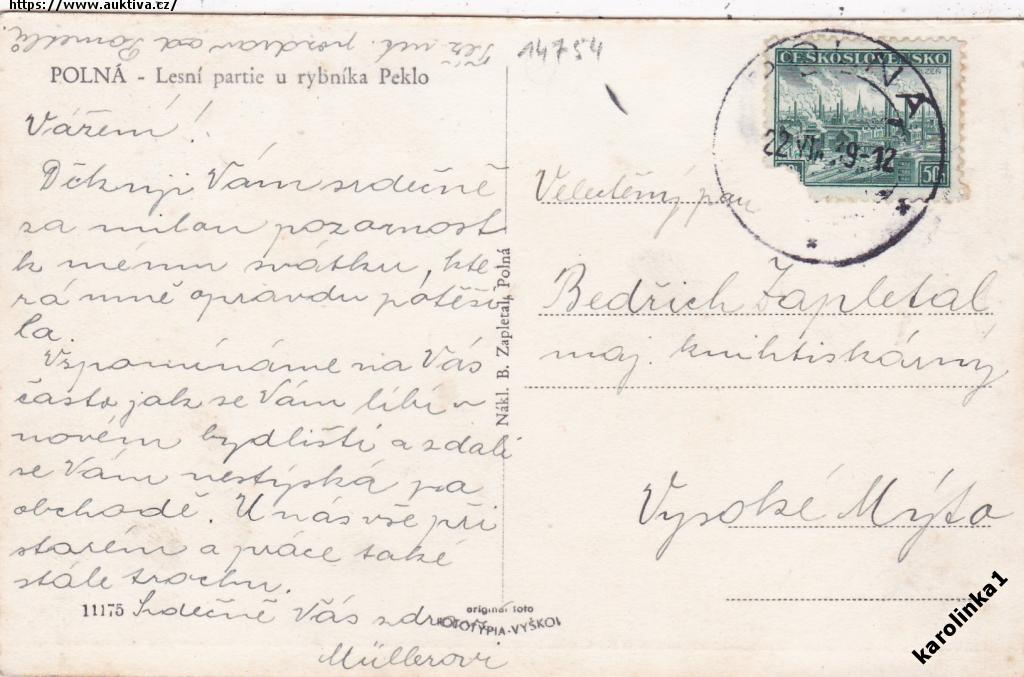 https://www.auktiva.cz/
Též uct. pozdrav od
14754
POLNÁ - Lesní partie u rybníka Peklo
Vážení!
Děkuji Vám srdečně
za milou pozornost
k mému svátku, kte
rá mně opravdu potěši
la.
Vzpomínáme na Vás
často jak se Vám líbí v
novém bydlišti a zdali
se Vám nestýská po
obchodě. U nás vše při
starém a práce také
stále trochu.
Srdečně Vás zdraví
Müllerovi
11175
original foto
FOTOTYPIA-VYŠKOV
Nákl. B. Zapletal, Polná
ČESKOSLOVENSKO
50h
POLNÁ
22.VII.39-12
Velectěný pan
Bedřich Zapletal
maj. knihtiskárny
Vysoké Mýto
karolinka1